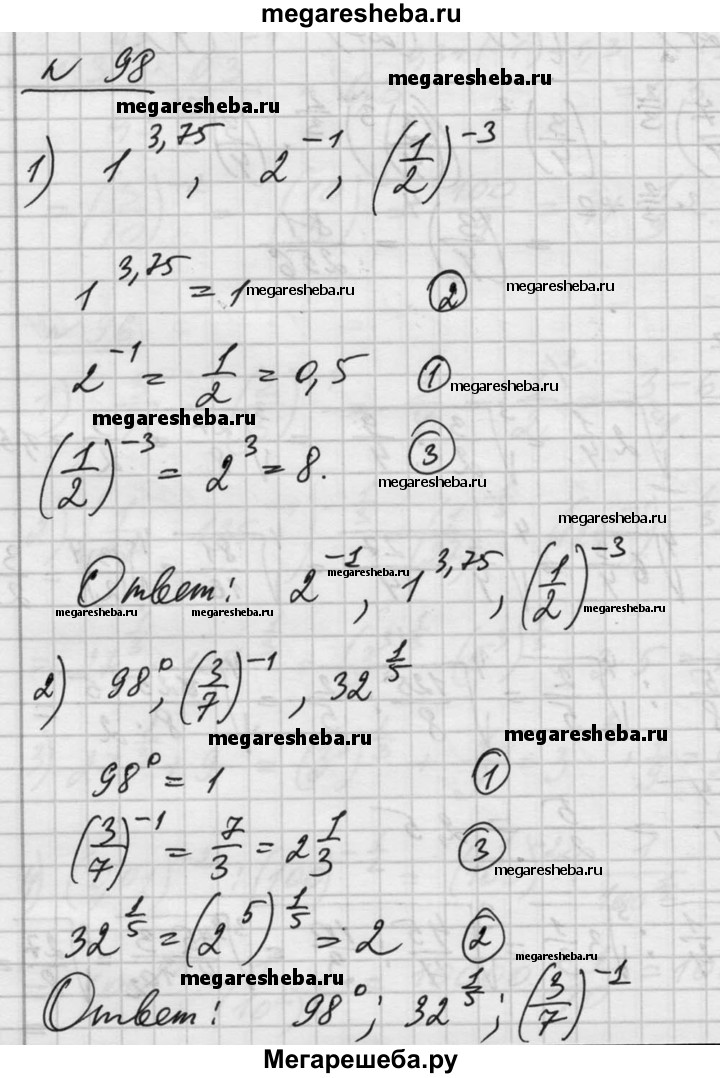 megaresheba.ru
№ 98
megaresheba.ru
megaresheba.ru
1) 1^3,75, 2^-1, (1/2)^-3
1^3,75 = 1 megaresheba.ru ② megaresheba.ru
2^-1 = 1/2 = 0,5 ① megaresheba.ru
megaresheba.ru
(1/2)^-3 = 2^3 = 8. ③
megaresheba.ru
megaresheba.ru
Ответ: 2^-1, 1^3,75, (1/2)^-3
megaresheba.ru
megaresheba.ru megaresheba.ru megaresheba.ru
2) 98^0, (3/7)^-1, 32^1/5
megaresheba.ru megaresheba.ru
98^0 = 1 ①
(3/7)^-1 = 7/3 = 2 1/3 ③
megaresheba.ru
32^1/5 = (2^5)^1/5 = 2 ②
megaresheba.ru megaresheba.ru
Ответ: 98^0; 32^1/5; (3/7)^-1
Мегарешеба.ру